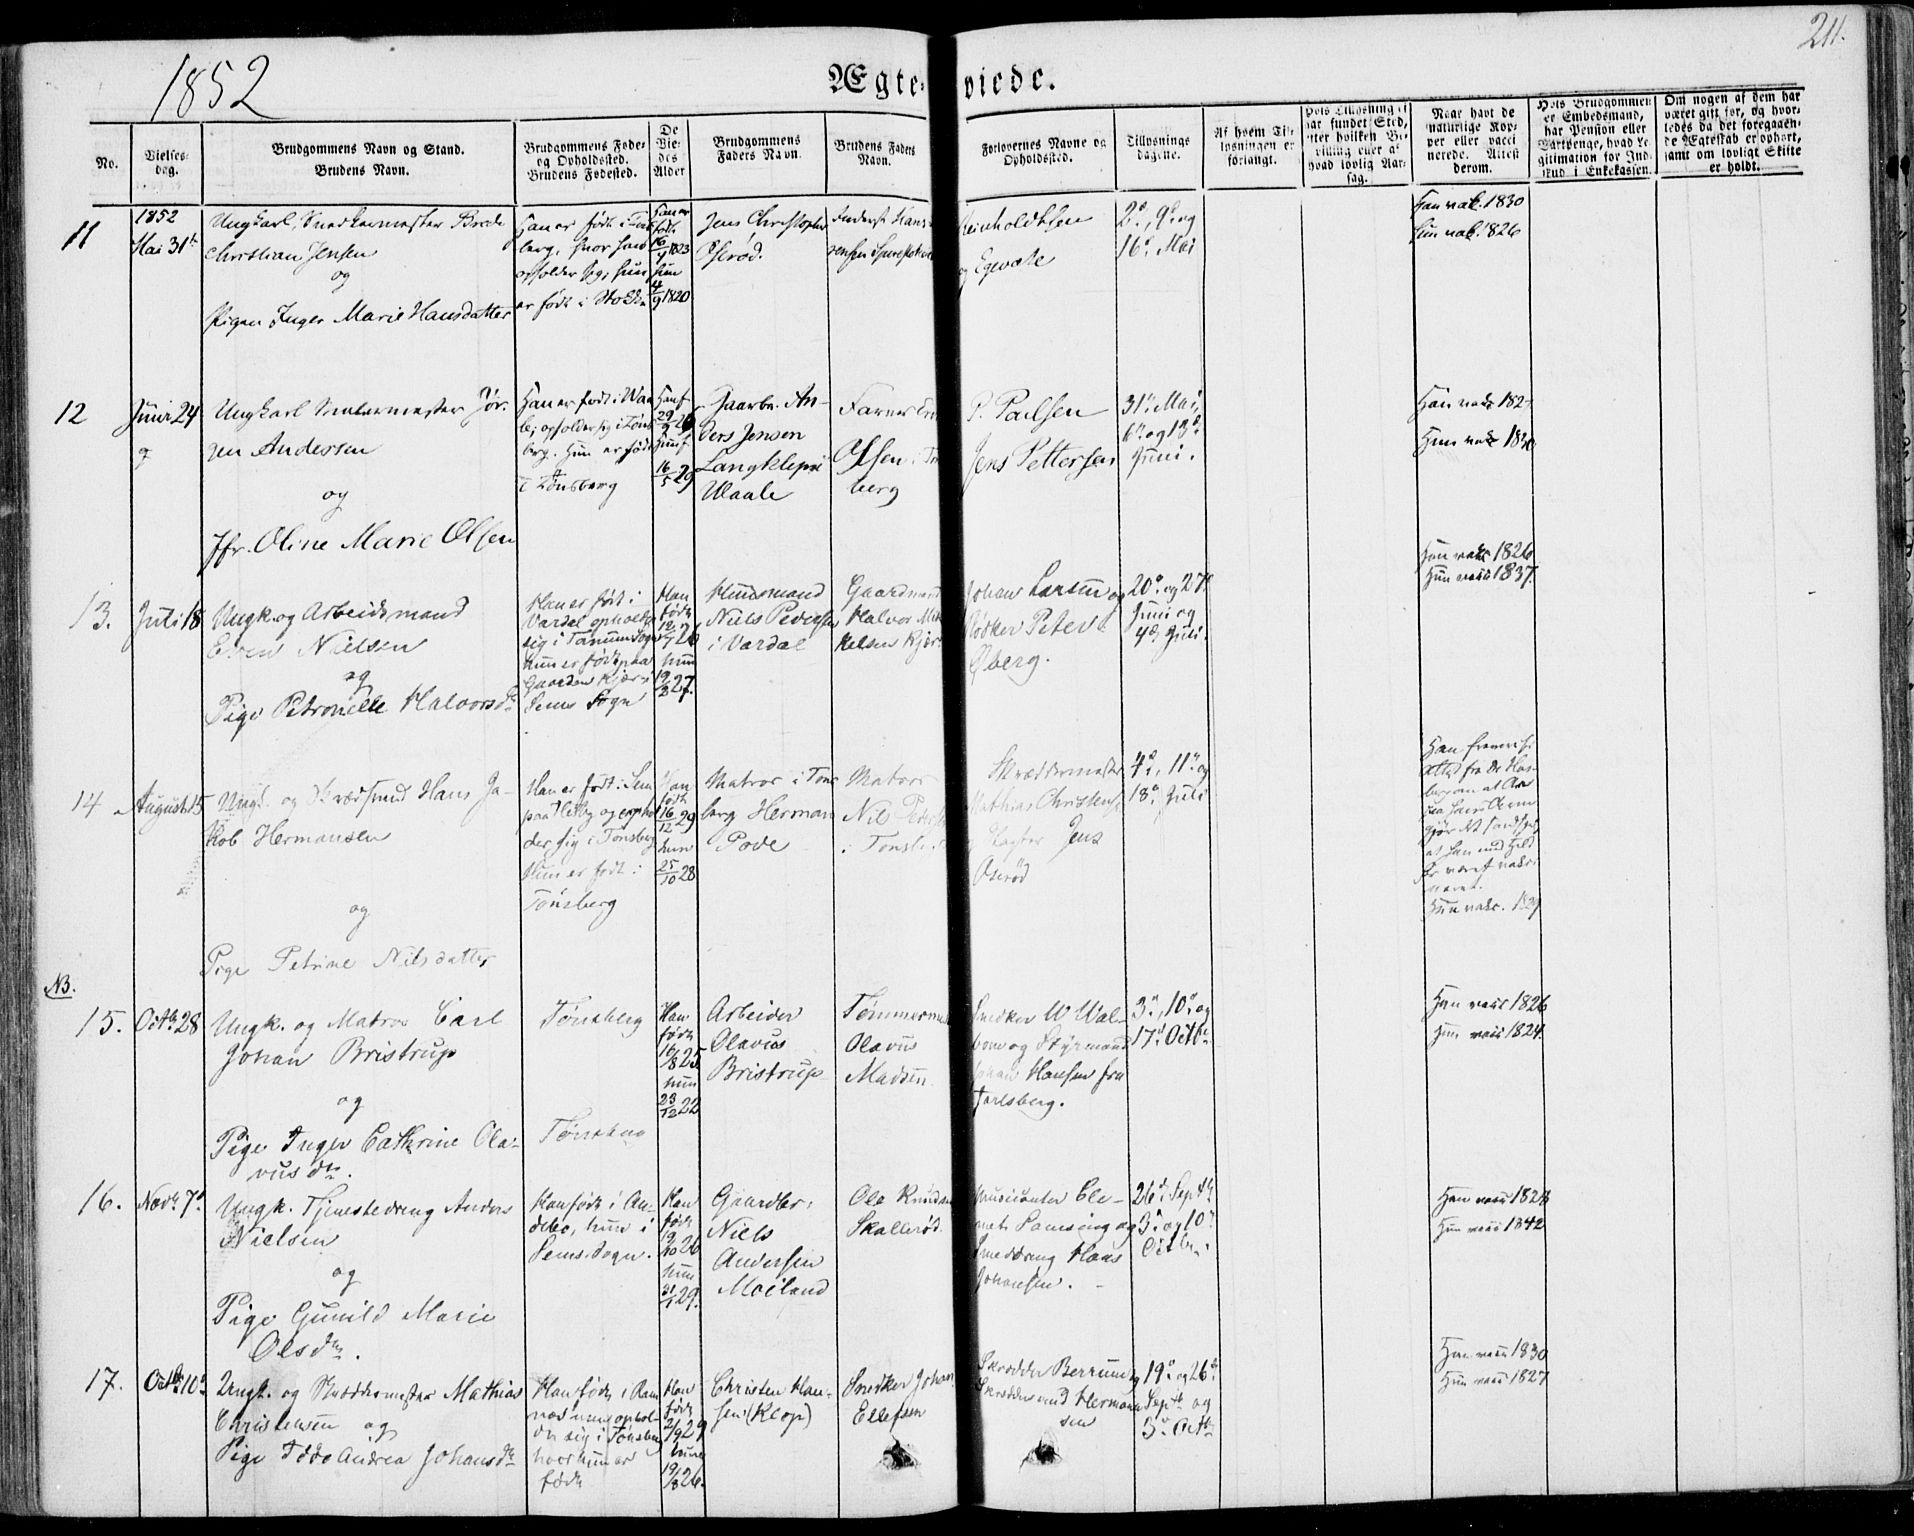 1852
Ægteviede.
211.
No.
Vielses-
dag.
Brudgommens Navn og Stand.
Brudens Navn.
Brudgommens Føde-
og Opholdssted.
Brudens Fødested.
De
Vie-
des
Alder
Brudgommens
Faders Navn.
Brudens Faders
Navn.
Forlovernes Navne og
Opholdssted.
Tillysnings
dagene.
Af hvem Til-
lysningen er
forlangt.
Naar havt de
naturlige Kop-
per eller vacci
nerede. Attest
derom.
Hvis Brudgommen
er Embedsmand,
har Pension eller
Vartpenge, hvad Le-
gitimation for Ind-
skud i Enkekassen.
Om nogen af dem har
været gift før, og hvor-
ledes da det foregaaen-
de Ægteskab er ophørt,
samt om lovligt Skifte
er holdt.
11
1852
Mai 31te
Ungkarl Snedkermester
Christian Jensen
og
Pigen Inger Marie Hansdatter
Han er født i Tøns
berg, hvor han
opholder sig; hun
er født i Stokke
Han er
født
16/9 1823
hun
4/9 1820
Jens Christopher
Oserød.
Anders Hans
Reinholdtsen
og Egevale
2d, 9d og
16d Mai
Han vak. 1830
Hun vak. 1826
12
Juni 24
Ungkarl Malermester Jør-
gen Andersen
og
Jfr. Oline Marie Olsen
Han er født i Waa
le; opholder sig i Tøns
berg. Hun er født
i Tønsberg
Han f.
29/9 26
Hun f
16/5 29
Gaardbr. An-
ders Jensen
Langklepsi
Waale
Farver
Olsen i Tøns
berg
P. Paulsen
Jens Pettersen
31te Mai,
6te og 13de
Juni.
Han vakc 182
Hun vakc 1830
13.
Juli 18
Ungk. og Arbeidsmand
Even Nielsen
og
Pige Petronelle Halvorsdr
Han er født i
Vardal opholder
sig i Tanum Sogn
hun er født paa
Gaarden Kjær i
Sems Sogn
Han
født
12/7 26
hun
19/2 27.
Huusmand
Niels Pedersen
i Vardal
Gaardmand
Halvor Mik
kelsen Kjær
Johan Larsen og
Bødker Peter
Øberg.
20d og 27d
Juni og
4d Juli.
Han vakc 1826
Hun vacc 1837.
14
August 15
Ungk. og Skrædsvend Hans Ja-
kob Hermansen
og
Pige Petrine Nilsdatter
Han er født i Sem
paa og ophol
der sig i Tønsberg
Hun er født i
Tønsberg
Han
født
16/12 29
hun
25/10 28
Matros i Tøns
berg Herman
Pove
Matros
Nils Peders
i Tønsberg
Skræddermester
Mathias Christensen
og Jens
Oserød
4d, 11te og
18d Juli
Han fremviste
Attest fra
at han
været vakci
neret.
Hun vakc. 1829
NB.
15.
Octbr 28
Ungk. og Matros Carl
Johan Bristrup
og
Pige Inger Cathrine Ola-
vusdtr.
Tønsberg
Tønsberg
Han
født
16/8 25
hun
23/12 22
Arbeider
Olavus
Bristrup
Tømmermand
Olavus
Madsen
Snedker W Wal-
bom og Styrmand
Johan Hansen fra
Jarlsberg.
3d, 10d og
17d Octbr
Han vacc 1826
Hun vacc 1824.
16.
Novbr 7d
Ungk. Tjenestedreng Anders
Nielsen
og
Pige Gunild Marie
Olsdtr.
Han født i An-
debo, hun i
Sems Sogn.
Han
født
9/10 26
hun
31/1 29.
Gaardbr.
Niels
Andersen
Moiland
Ole
Skallerød.
Musicanter Cle-
ment Lamsing og
Smeddreng Hans
Johansen.
26d Septbr
3d og 10d
Octbr.
Han vacc 1828
Hun vacc 1842
17.
Octbr 10d
Ungk. og Skræddermester Mathias
Christensen og
Pige Idde Andrea Johansdtr
Han født i Ram
næs men ophol-
der sig i Tønsberg
hvor hun er
født
Han
født
2/9 29
hun
19/8 26.
Christen Han-
sen (Klop)
Snedker Johan
Ellefsen
Skrædder Berrum og
Skræddersvend Herman
sen
19d og 26de
Septbr og
3d Octbr
Han vacc 1830
Hun vacc 1827